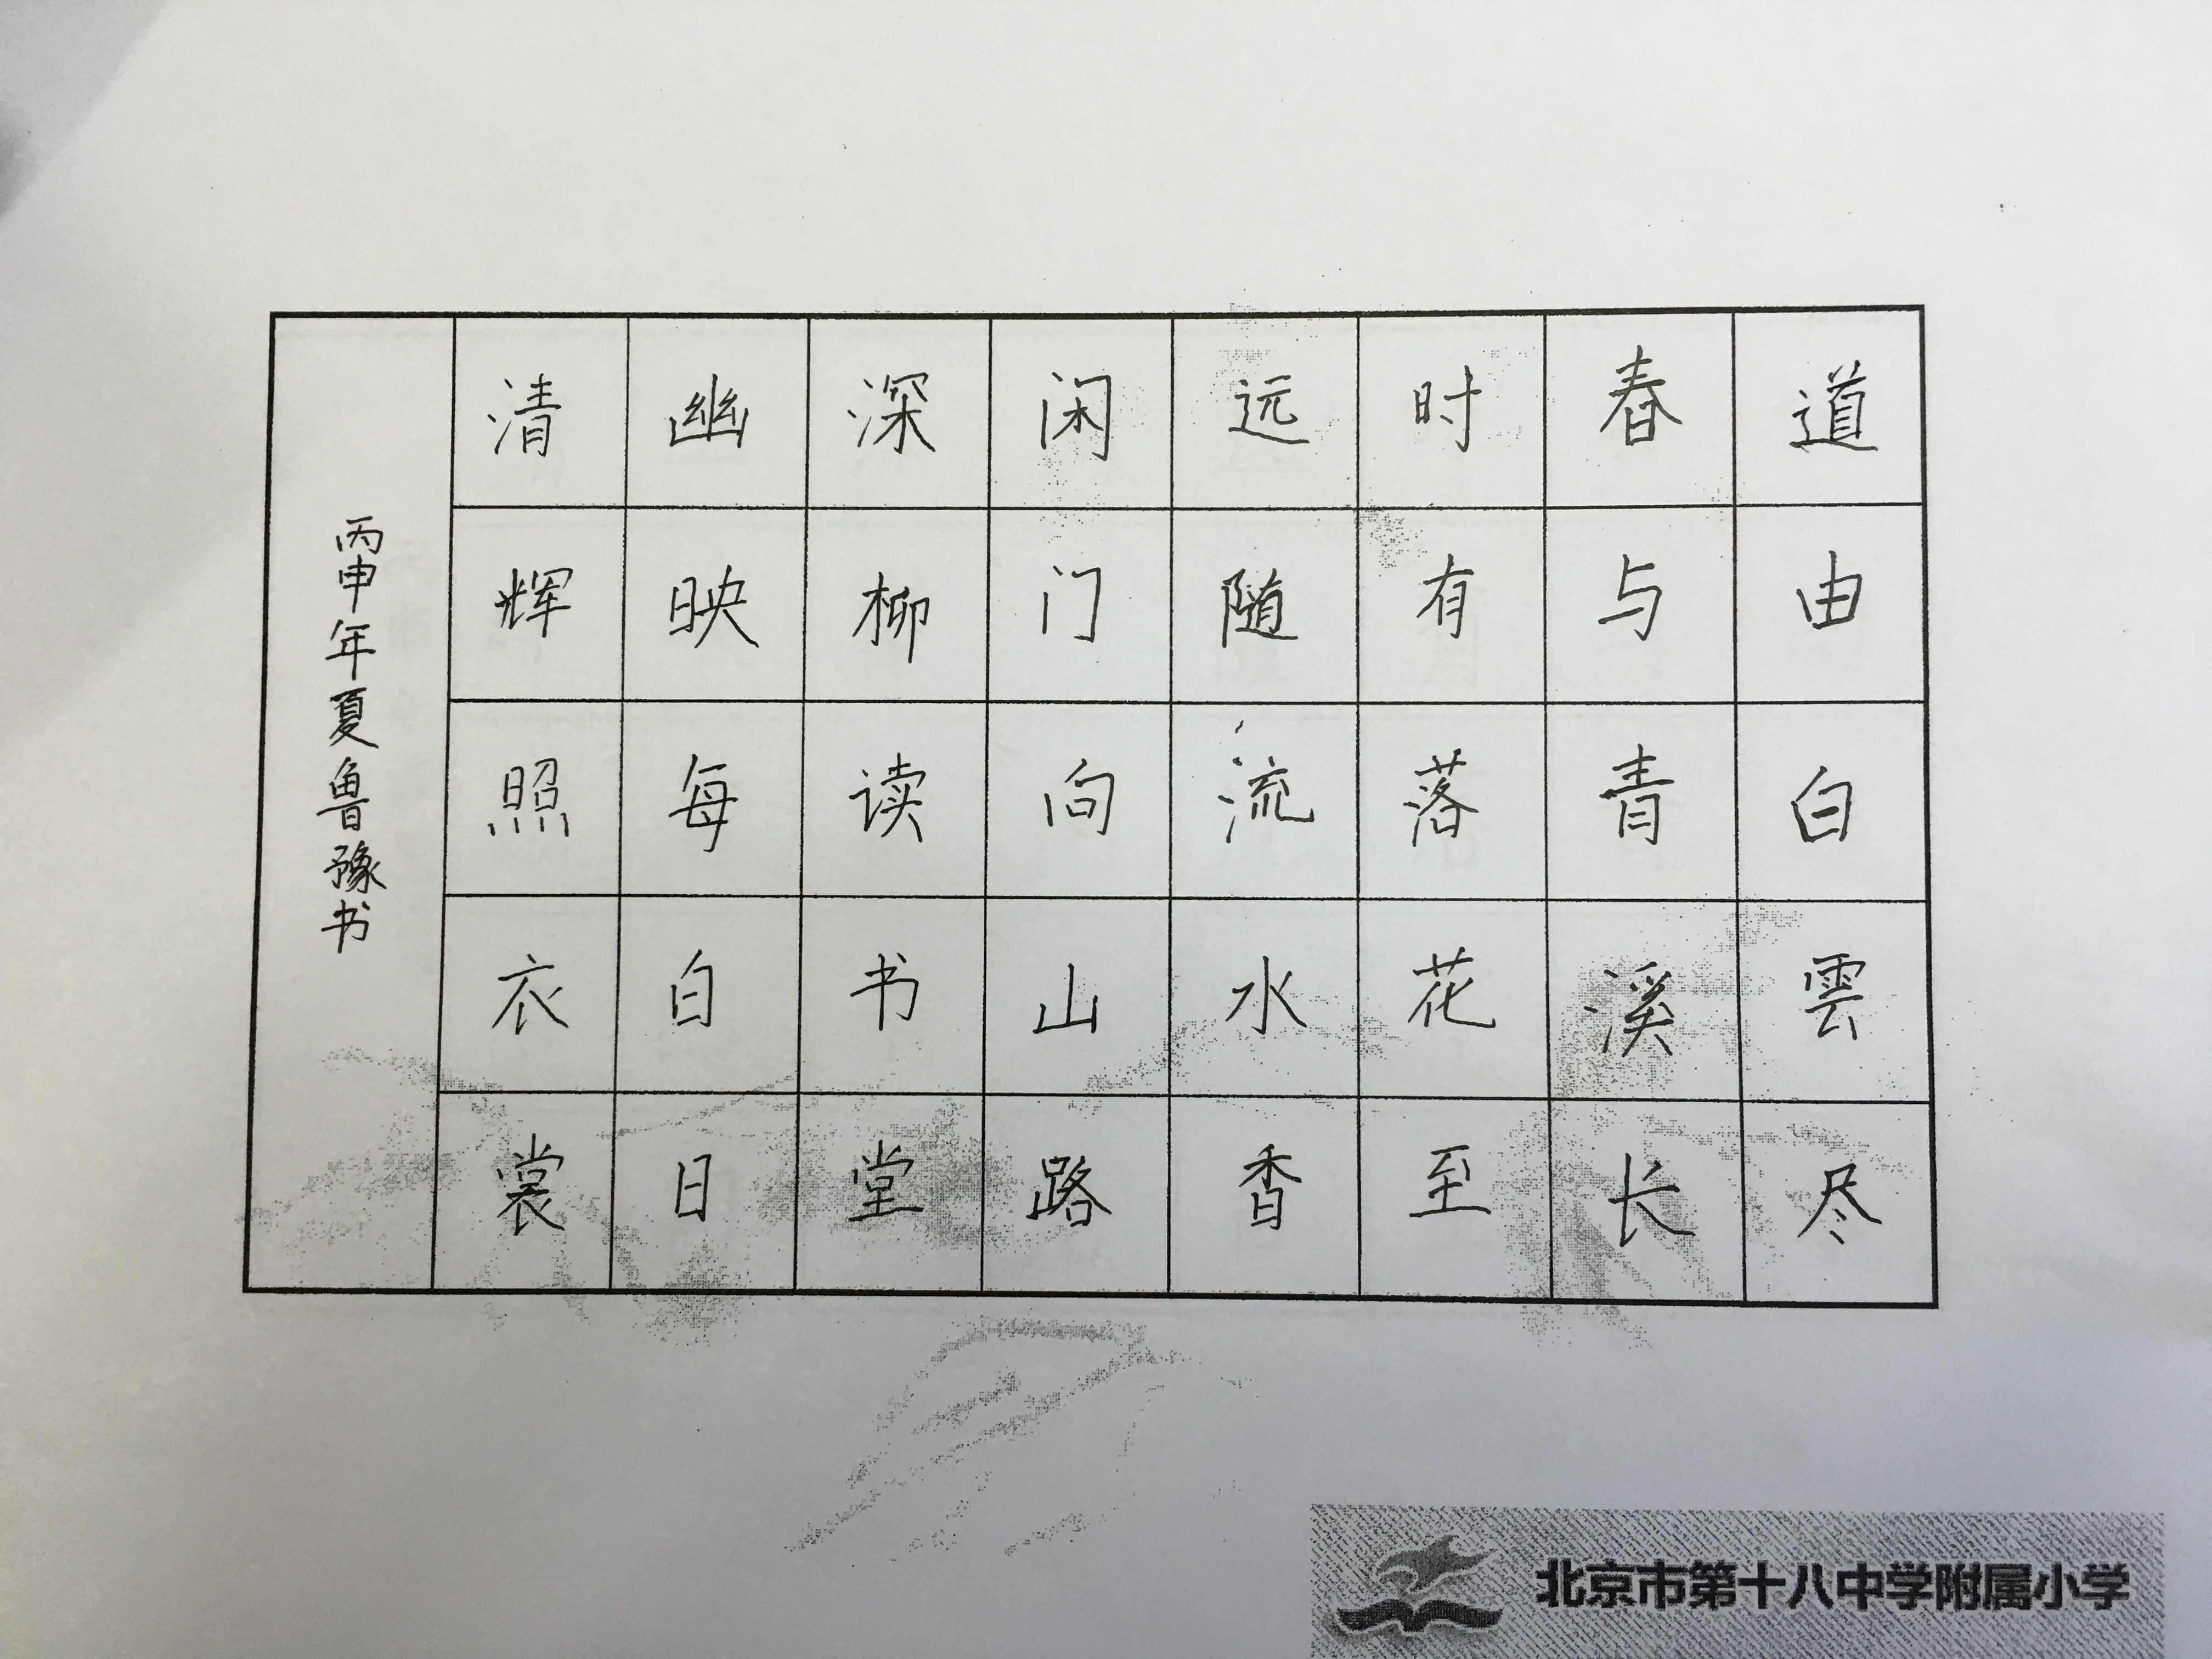 道由白雲尽
春与青溪长
时有落花至
远随流水香
闲门向山路
深柳读书堂
幽映每白日
清辉照衣裳
丙申年夏鲁豫书
北京市第十八中学附属小学